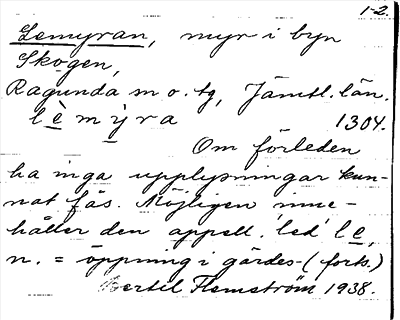 1-2.
Lemyran, myr i byn
Skogen,
Ragunda sn o. tg, Jämtl. län.
lè mỳra 1304.
Om förleden
ha inga upplysningar kun-
nat fås. Möjligen inne-
håller den appell. 'led' le,
n. = öppning i gärdes- (forts.)
Bertil Flemström 1938.